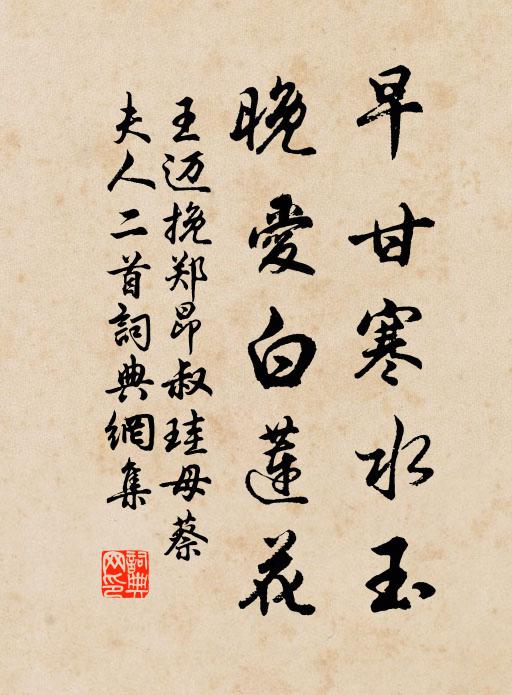 早甘寒水玉
晚愛白蓮花
王迈挽郑昂叔珪母蔡
夫人二首詞典網集
詞典网印